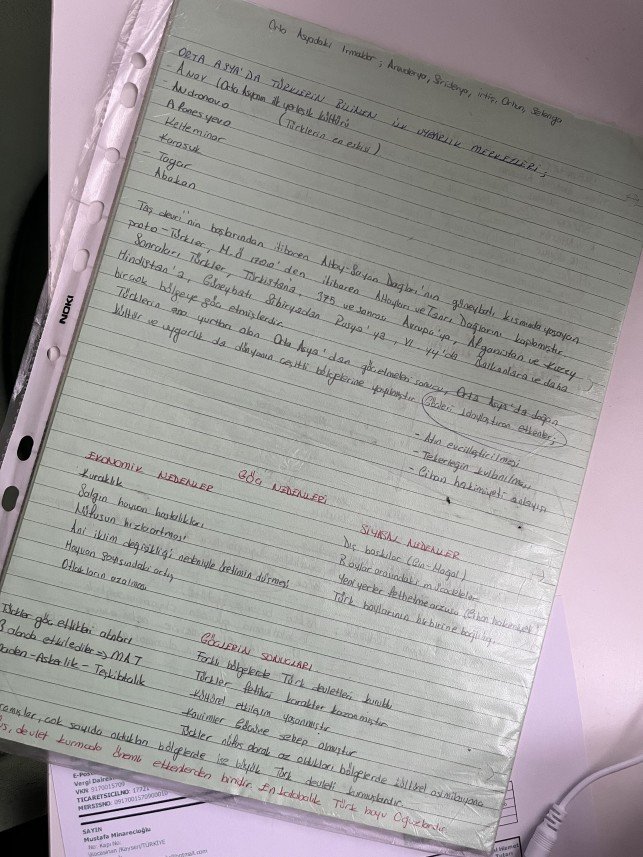 Orta Asyadaki Irmaklar ; Amuderya, Sirideryo, irtiş, Orhun, Selenga
ORTA ASYA'DA TÜRKLERİN BİLİNEN İLK UYGARLIK MERKEZLERİ ;
Anav (Orta Asyanın ilk yerleşik kültürü
- Andronovo (Türklerin en eskisi)
Afanesyevo
Kelteminar
Karasuk
- Tagar
Abakan
Taş devri'nin başlarından itibaren Altay-Sayan Dağları'nın güneybatı kısmında yaşayan
proto-Türkler, M.Ö 1700'den itibaren Altayları ve Tanrı Dağlarını kaplamıştır.
Sonraları Türkler, Türkistana, 375 ve sonrası Avrupa'ya, Afganistan ve Kuzey
Hindistan'a, Güneybatı Sibiryadan Rusya'ya, VI. yy'da Balkanlara ve daha
birçok bölgeye göç etmişlerdir.
Türklerin ana yurtları olan Orta Asya'dan göçetmeleri sonucu, Orta Asya'da doğan
kültür ve uygarlık da dünyanın çeşitli bölgelerine yayılmıştır. Göçleri kolaylaştıran etkenler;
- Atın evcilleştirilmesi
- Tekerleğin kullanılması
- Cihan hakimiyeti anlayışı
GÖÇ NEDENLERİ
EKONOMİK NEDENLER
Kuraklık
Salgın hayvan hastalıkları
Nüfusun hızla artması
Ani iklim değişikliği nedeniyle üretimin düşmesi
Hayvan sayısındaki artış
Otlakların azalması
SİYASAL NEDENLER
Dış baskılar (Çin-Moğol)
Boylar arasındaki mücadeleler
Yeni yerler fethetme arzusu (Cihan hakimiyeti)
Türk boylarının birbirine bağlılığı
Türkler göç ettikleri alanları
3 alanda etkilediler => MAT
Maden-Askerlik-Teşkilatçılık
GÖÇLERİN SONUÇLARI
Farklı bölgelerde Türk devletleri kuruldu
Türkler fetihçi karakter kazanmıştır
Kültürel etkileşim yaşanmıştır
Kavimler Göçüne sebep olmuştur
Türkler nüfus olarak az oldukları bölgelerde kültürel asimilasyona
, çok sayıda oldukları bölgelerde ise büyük Türk devleti kurmuşlardır.
, devlet kurmada önemli etkenlerden biridir. En kalabalık Türk boyu Oğuzlardır.
NOKI
E-Posta
Vergi Dairesi
VKN 9170015709
TICARETSICILNO: 17721
MERSISNO: 0917001570900010
SAYIN
Mustafa Minarecioğlu
No: Kapı No:
/Kayseri/TÜRKİYE